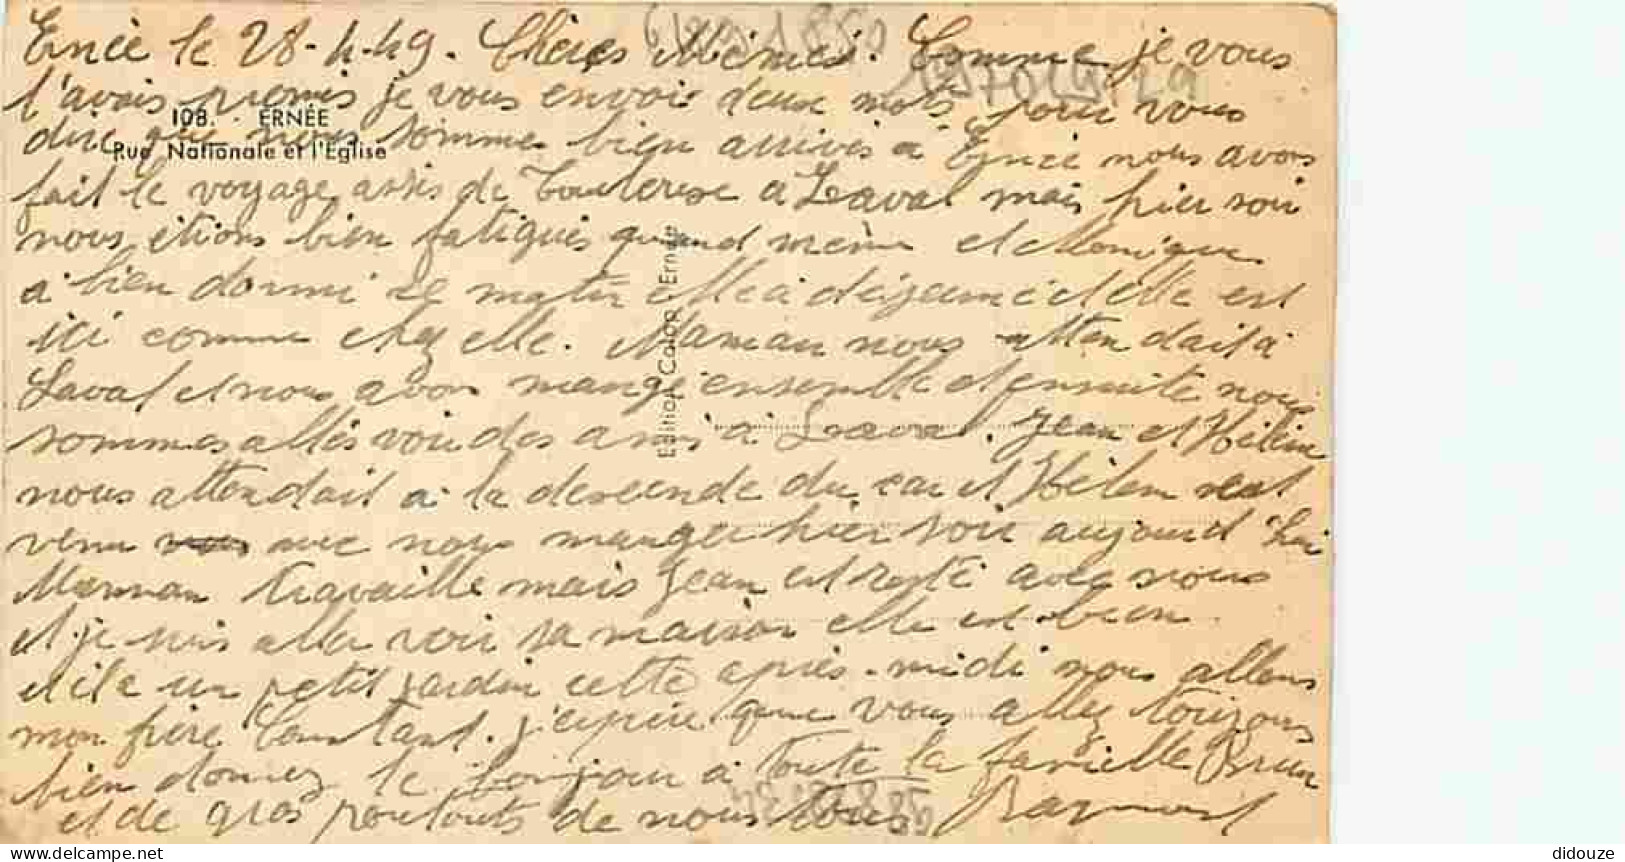 Ernée le 28-4-49. Chères Mémés. Comme je vous
l'avais promis je vous envoie deux mots pour vous
108. - ERNÉE
dire que nous somme bien arrivés a Ernée nous avons
Rue Nationale et l'Eglise
fait le voyage assis de Toulouse a Laval mais hier soir
nous étions bien fatigués quand même et Monique
a bien dormi ce matin elle a déjeuné et elle est
ici comme chez elle. Maman nous attendait à
Laval et nous avons mangé ensemble et ensuite nous
sommes allés voir des amis a Laval. Jean et Hélène
nous attendait a la descende du car et Hélène est
venu avec nous manger hier soir aujourd'hui
Maman travaille mais Jean est resté avec nous
et je suis aller voir sa maison elle est bien
et il a un petit jardin cette après-midi nous allons
mon frère Constant. j'espère que vous allez toujours
bien donnez le bonjour a toute la famille Brun
et de gros poutouts de nous tous Raymond
Edition Calop, Ernée
didouze